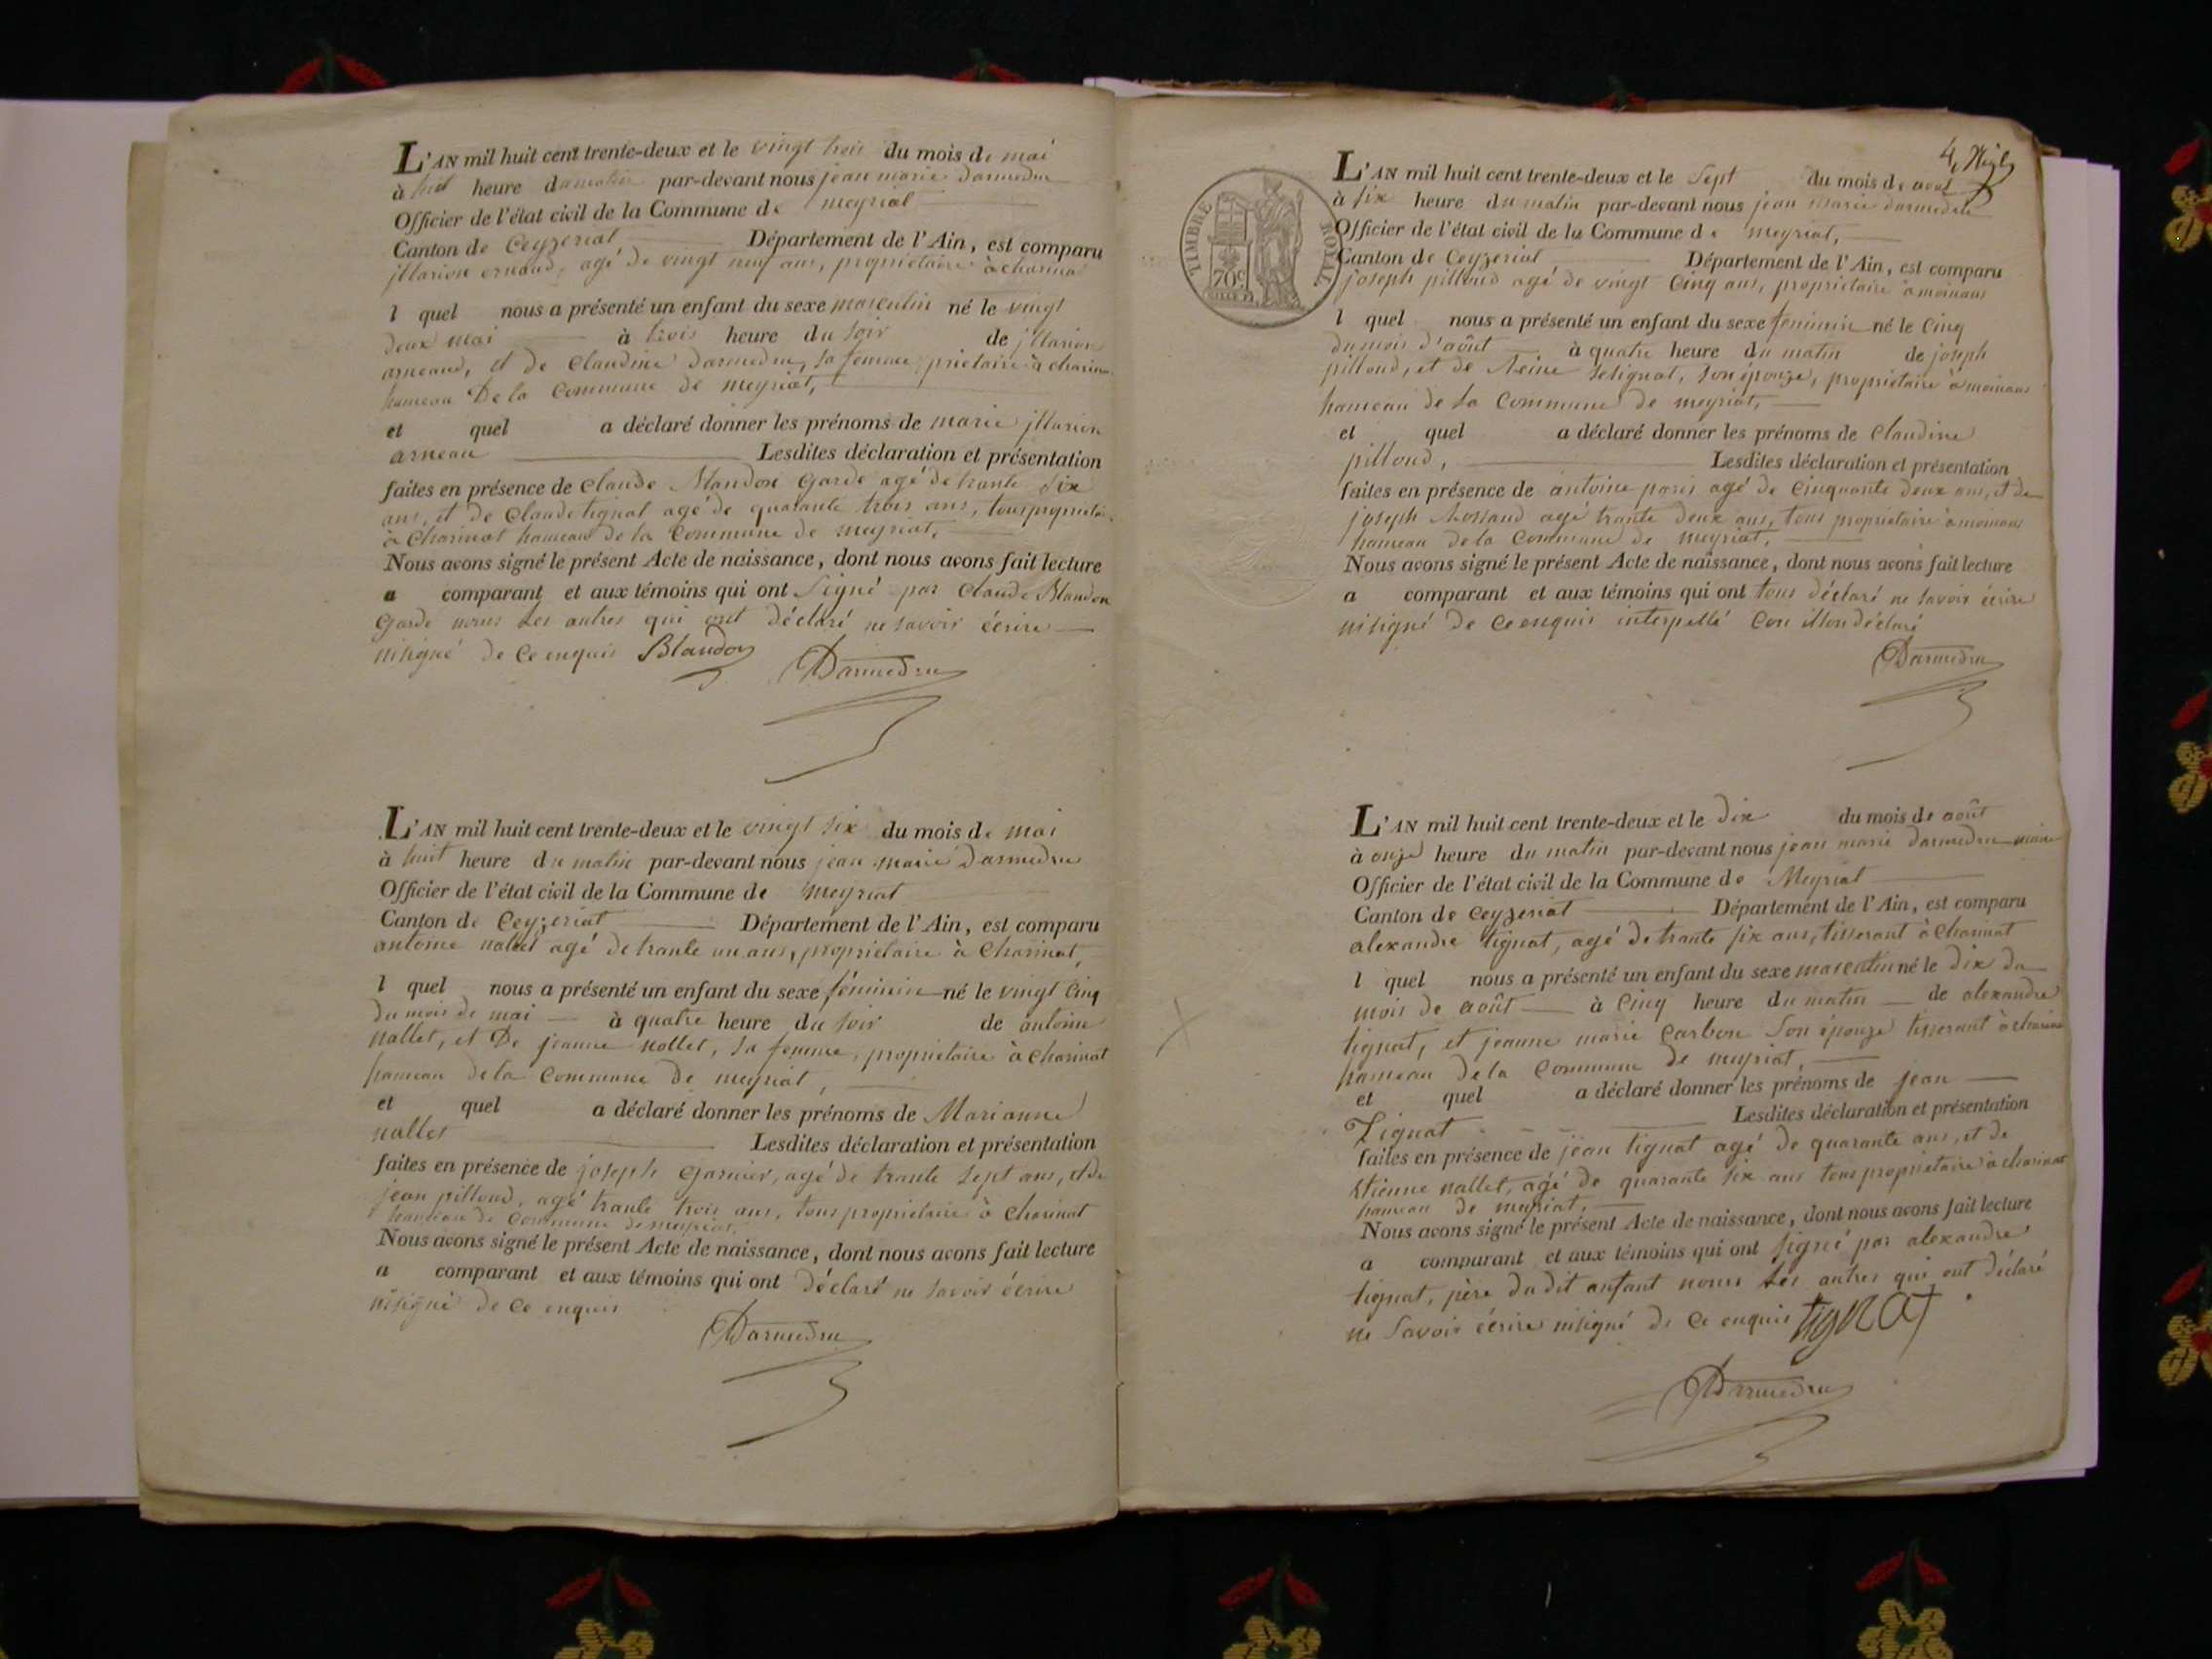 L'AN mil huit cent trente-deux et le vingt trois du mois de mai
à huit heure du matin par-devant nous jean marie darmedru
Officier de l'état civil de la Commune de meyriat
Canton de Ceyzeriat Département de l'Ain, est comparu
jllarion agé de vingt neuf ans, propriétaire à charina
l quel nous a présenté un enfant du sexe masculin né le vingt
deux mai à trois heure du soir de jllarion
arneaud, et de Claudine darmedru, sa femme prietaire à charina
hameau De la Commune de meyriat,
et quel a déclaré donner les prénoms de marie jllarion
arneau Lesdites déclaration et présentation
faites en présence de Claude Blandon Garde agé de trante six
ans, et de Claude tignat agé de quarante trois ans, tous proprietai
à Charinat hameau de la Commune de meyriat,
Nous avons signé le présent Acte de naissance, dont nous avons fait lecture
a comparant et aux témoins qui ont Signé par Claude Blandon
Garde nonus les autres qui ont déclaré ne savoir écrire
nisigné de Ce enquis Blandon
Darmedru
L'AN mil huit cent trente-deux et le vingt six du mois de mai
à huit heure du matin par-devant nous jean marie Darmedru
Officier de l'état civil de la Commune de meyriat
Canton de Ceyzeriat Département de l'Ain, est comparu
antoine nallet agé de trante un ans, propriétaire à Charinat,
l quel nous a présenté un enfant du sexe féminin né le vingt Cinq
du mois de mai à quatre heure du soir de antoine
nallet, et De jeanne nollet, sa femme, propriétaire à Charinat
hameau de la Commune de meyriat,
et quel a déclaré donner les prénoms de Marianne
nallet Lesdites déclaration et présentation
faites en présence de joseph Garnier, agé de trante sept ans, et de
jean pilloud, agé trante trois ans, tous propriétaire à Charinat
hameau de Commune de meyriat,
Nous avons signé le présent Acte de naissance, dont nous avons fait lecture
a comparant et aux témoins qui ont déclaré ne savoir écrire
nisigné de Ce enquis
Darmedru
4
TIMBRE ROYAL
70c
L'AN mil huit cent trente-deux et le Sept du mois de aout
à six heure du matin par-devant nous jean marie darmedru
Officier de l'état civil de la Commune de meyriat,
Canton de Ceyzeriat Département de l'Ain, est comparu
joseph pilloud agé de vingt Cinq ans, propriétaire à moinans
l quel nous a présenté un enfant du sexe féminin né le Cinq
du mois d'août à quatre heure du matin de joseph
pilloud, et de Reine Solignat, son épouze, propriétaire à moinans
hameau de la Commune de meyriat,
et quel a déclaré donner les prénoms de Claudine
pilloud, Lesdites déclaration et présentation
faites en présence de antoine paris agé de Cinquante deux ans, et de
joseph Rossand agé trante deux ans, tous propriétaire à moinans
hameau de la Commune de meyriat,
Nous avons signé le présent Acte de naissance, dont nous avons fait lecture
a comparant et aux témoins qui ont tous déclaré ne savoir écrire
nisigné de Ce enquis interpellé déclaré
Darmedru
L'AN mil huit cent trente-deux et le dix du mois de août
à onze heure du matin par-devant nous jean marie darmedru maire
Officier de l'état civil de la Commune de Meyriat
Canton de Ceyzeriat Département de l'Ain, est comparu
alexandre tignat, agé de trante six ans, tisserant à Charinat
l quel nous a présenté un enfant du sexe masculin né le dix du
mois de août à Cinq heure du matin de alexandre
tignat, et jeanne marie Carbon Son épouze tisserant à charina
hameau de la Commune de meyriat,
et quel a déclaré donner les prénoms de jean
Tignat Lesdites déclaration et présentation
faites en présence de jean tignat agé de quarante ans, et de
Etienne nallet, agé de quarante six ans tous propriétaire à charinat
hameau de meyriat,
Nous avons signé le présent Acte de naissance, dont nous avons fait lecture
a comparant et aux témoins qui ont signé par alexandre
tignat, père du dit anfant nonus les autres qui ont déclaré
ne Savoir écrire nisigné de Ce enquis tignat
Darmedru